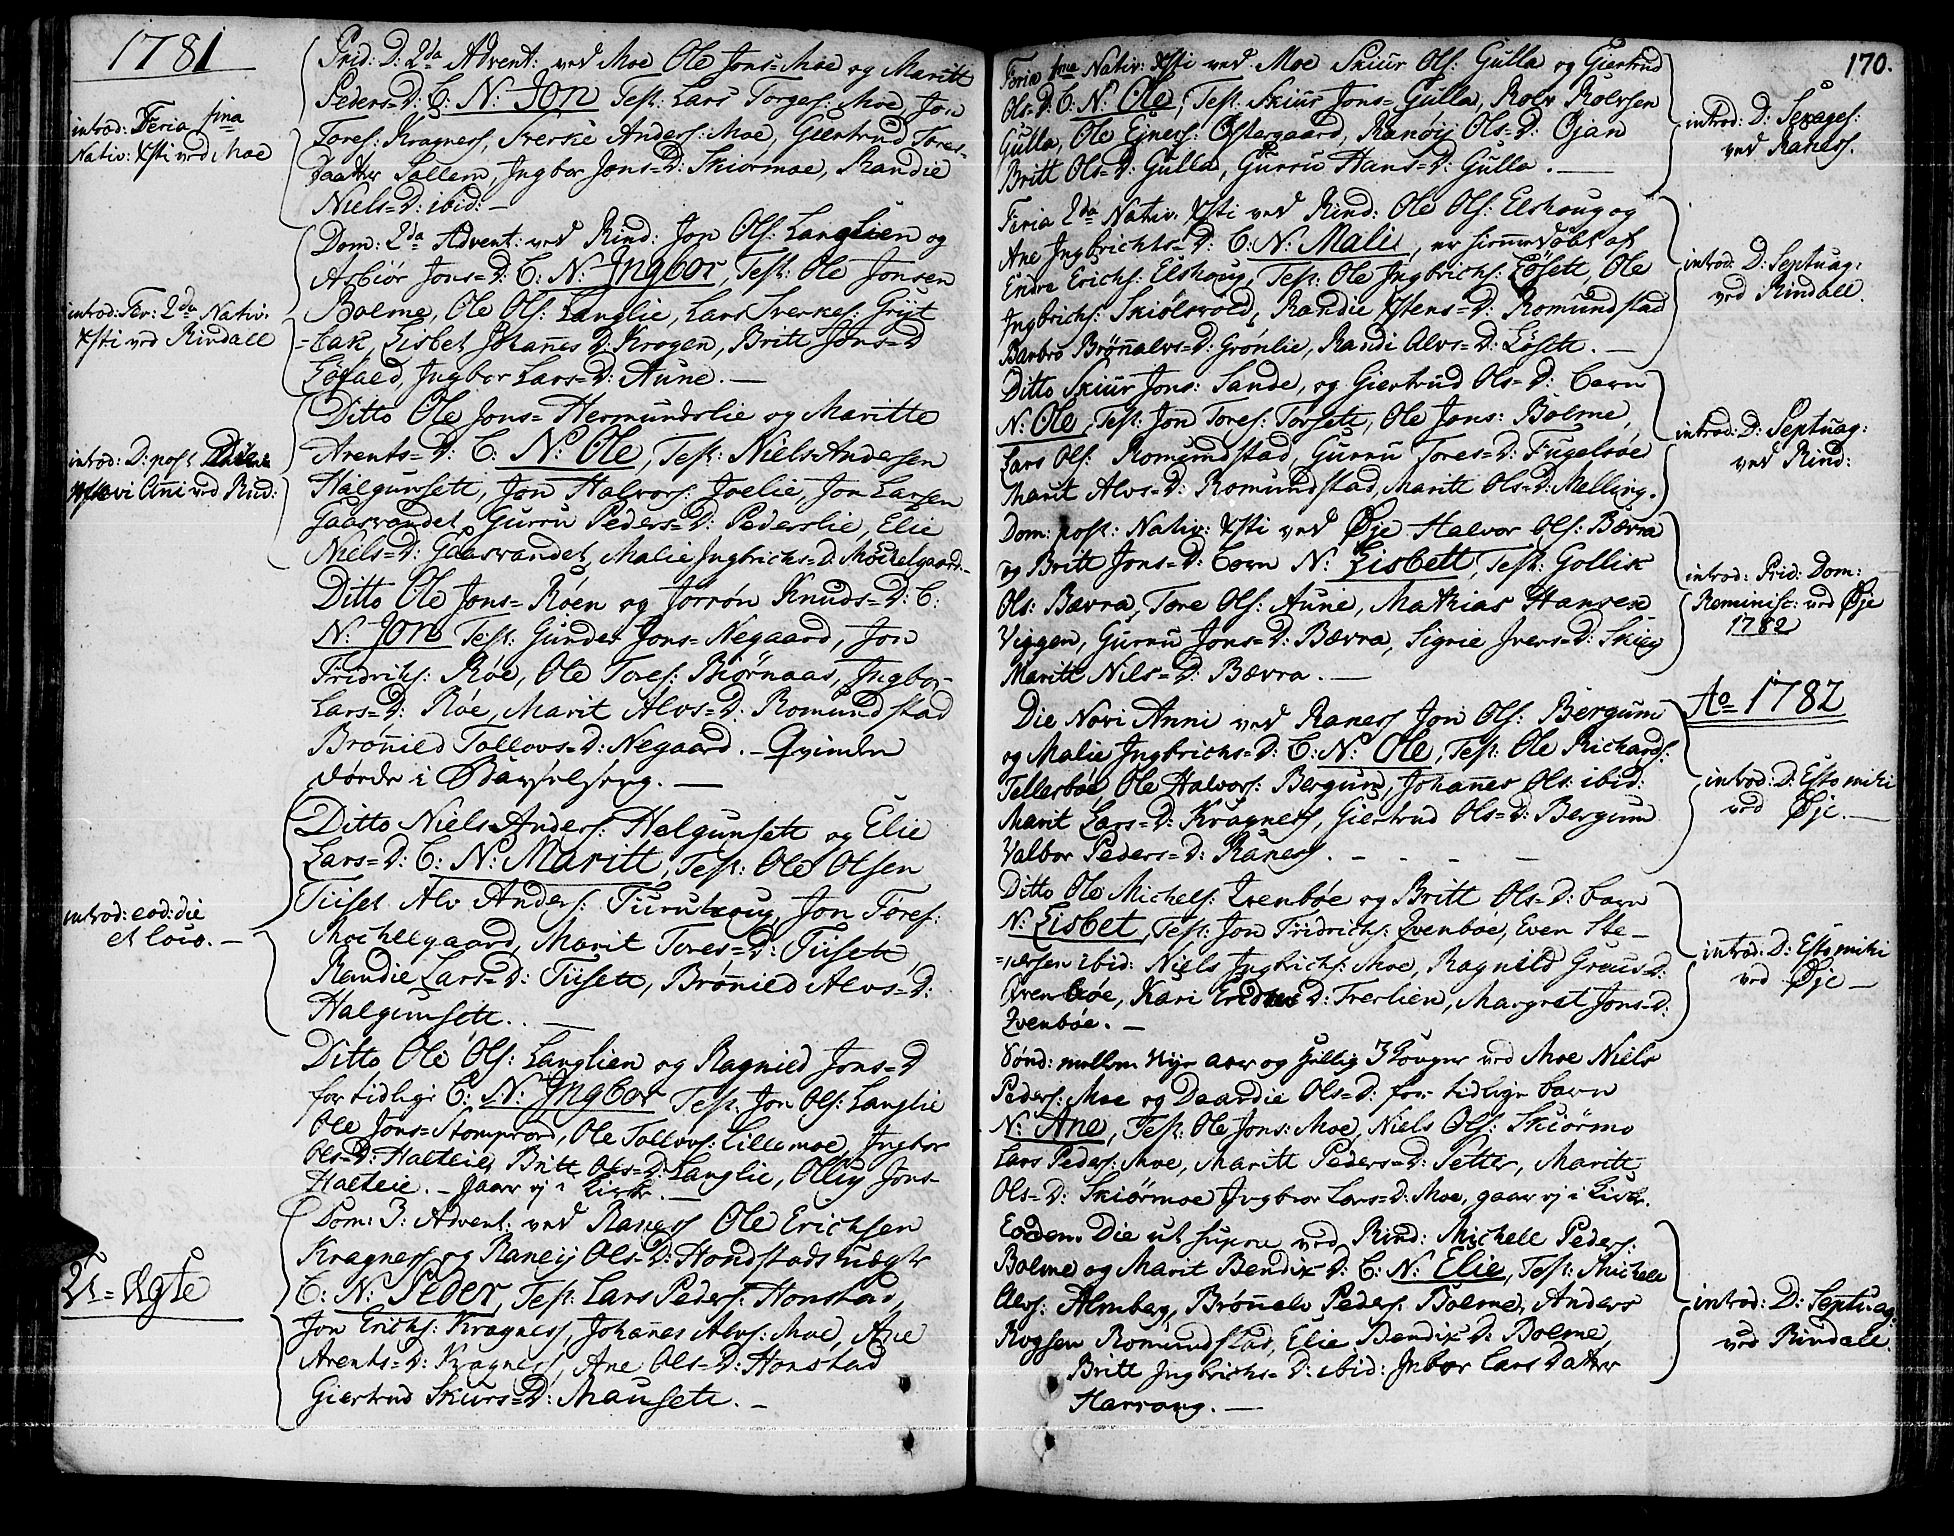 1781
Prid: D: 2da Advent: ved Moe Ole Jons= Moe og Maritt
Peders=D: C: N: Jon Test: Lars Torgers: Moe, Jon
Tores: Kragness, Sverke Anders: Moe, Giertrud Tores-
Daatter Sollem, Ingbor Jons=D: Skiørmoe, Randie
Niels=D: ibid: —
introd: Feria 1ma
Nativ: Xsti ved Moe
Dom: 2da Advent: ved Rind: Jon Ols: Langlien og
Asbiør Jons=D: C: N: Ingbor, Test: Ole Jonsen
Bolme, Ole Ols: Langlie, Lars Sverkes: Grijt
=bak, Lisbet Johannes D: Krogen, Britt Jons=D
Løfald, Ingbor Lars=D: Aune. —
introd: Fer: 2da Nativ:
Xsti ved Rindall
Ditto Ole Jons= Hermundslie og Maritte
Arents=D: C: N: Ole, Test: Niels Andersen
Halgunsett, Jon Halvors: Joelie, Jon Larsen
Gaasvandet, Gurru Peders=D: Pederslie, Elie
Niels=D: Gaasvandet, Malie Ingbrichs=D: Møchelgaard.-
introd: D: post
Novi Anni ved Rind:
Ditto Ole Jons= Røen og Jorrøn Knuds=D: C:
N: Jon Test: Gunder Jons= Negaard, Jon
Fridrichs: Røe, Ole Tores: Biørnaas, Ingbor
Lars=D: Røe, Marit Alvs=D: Romundstad
Brønild Tollovs=D: Negaard. — Qvinden
døde i Barselseng. —
Ditto Niels Anders: Halgunsett og Elie
Lars=D: C: N: Maritt, Test: Ole Olsen
Tiiset Alv Anders: Furuhoug, Jon Tores:
Mochelgaard, Marit Tores=D: Tiisett,
Randie Lars=D: Tiisett, Brønild Alvs=D:
Halgunsett. —
introd: eod: die
et loco. —
Ditto Ole Ols: Langlien og Ragnild Jons=D
for tidlig: C: N: Ingbor Test: Jon Ols: Langlie
Ole Jons= Stomprød, Ole Tollovs: Lillemoe, Ingbor
Ols=D: Halteie, Britt Ols=D: Langlie, Ollig Jons-
Halteie. — gaar ej i Kirke. —
Dom: 3: Advent: ved Raness Ole Erichsen
Kragness og Raneij Ols=D: Hondstads uægte
C: N: Peder, Test: Lars Peders: Honstad,
Jon Erichs: Kragness, Johannes Alvs: Moe, Ane
Arents=D: Kragness, Ane Ols=D: Honstad
Giertrud Skiurs=D: Mausett. —
U=Ægte
170.
Feria 1ma Nativ: Xsti ved Moe Skiur Ols: Gulla og Giertrud
Ols=D: C: N: Ole, Test: Skiur Jons= Gulla, Rolv Rolvsen
Gulla, Ole Ejners: Østergaard, Ranøij Ols=D: Øjan
Britt Ols=D: Gulla, Gurru Hans=D: Gulla. —
introd: D: Sexages:
ved Raness.
Feria 2da Nativ: Xsti ved Rind: Ole Ols: Elshoug og
Ane Ingbrichts=D: C: N: Mali, er hiemmedøbt af
Endre Erichs: Elshoug, Test: Ole Ingbrichs: Løsett, Ole
Ingbrichs: Skiølsvold, Randie Xstens=D: Romundstad
Barbro Brønnalvs=D: Grønlie, Randi Alvs=D: Løsett. —
introd: D: Septuag:
ved Rindall.
Ditto Skiur Jons: Sande, og Giertrud Ols=D: barn
N: Ole, Test: Jon Tores: Torsett, Ole Jons: Bolme,
Lars Ols: Romundstad, Gurru Tores=D: Fugelsøe
Marit Alvs=D: Romundstad, Maritt Ols=D: Melling.
introd: D: Septuag:
ved Rind:
Dom: post: Nativ: Xsti ved Øje Halvor Ols: Bævra
og Britt Jons=D: barn N: Lisbett, Test: Gollik
Ols: Bævra, Tore Ols: Aune, Mathias Hansen
Viggen, Gurru Jons=D: Bævra, Sigrie Ivers=D: Skiey
Maritt Nils=D: Bævra. —
introd: Prid: Dom:
Reminisc: ved Øje
1782
Ao 1782
Die Novi Anni ved Raness Jon Ols: Bergum
og Malie Ingbrichs=D: C: N: Ole, Test: Ole Richards:
Tellesbøe Ole Halvors: Bergum, Johannes Ols: ibid:
Marit Lars=D: Kragness, Giertrud Ols=D: Bergum
Valbor Peders=D: Raness. —
introd: D: Esto mihi
ved Øje. —
Ditto Ole Michels: Qvenbøe og Britt Ols=D: barn
N: Lisbet, Test: Jon Fridrichs: Qvenbøe, Even Ste-
=versen ibid: Niels Ingbrichs: Moe, Ragnild Greus=D:
Qvenbøe, Kari D: Trerlien, Margret Jons=D:
Qvenbøe. —
introd: D: Esto mihi
ved Øje —
Sønd: mellem Nye aar og hellig 3 Konger ved Moe Niels
Peders: Moe og Daardie Ols=D: for tidlige barn
N: Ane, Test: Ole Jons: Moe, Niels Ols: Skiørmo
Lars Peders: Moe, Maritt Peders=D: Setter, Maritt
Ols=D: Skiørmoe Ingbor Lars=D: Moe, gaar ej i Kirke.
Eodem Die ut supra ved Rind: Michell Peders:
Bolme og Marit Bendix D: C: N: Elie, Test: Michell
Alvs: Almberg, Brønnel Peders: Bolme, Anders
Rogsen Romundstad, Elie Bendix D: Bolme,
Britt Ingbrichs=D: ibid: Inbor Lars Datter
Harroug. —
introd: D: Septuag:
ved Rindall.